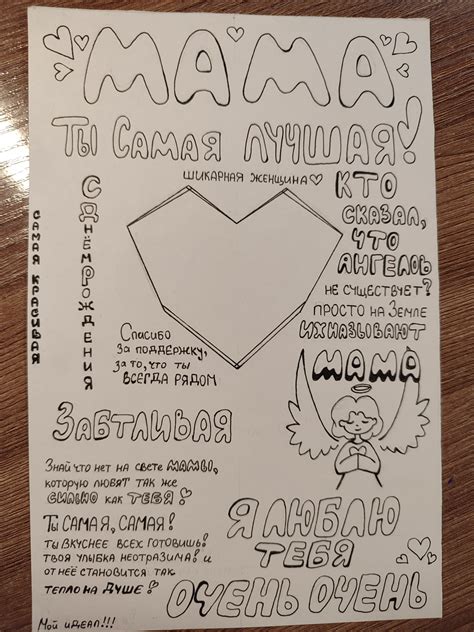 МАМА
Ты Самая ЛУЧШАЯ!
ШИКАРНАЯ ЖЕНЩИНА
САМАЯ КРАСИВАЯ
С ДНЁМ РОЖДЕНИЯ
КТО
СКАЗАЛ,
ЧТО
АНГЕЛОВ
НЕ СУЩЕСТВУЕТ?
ПРОСТО НА ЗЕМЛЕ
ИХ НАЗЫВАЮТ
МАМА
СПАСИБО
ЗА ПОДДЕРЖКУ,
ЗА ТО, ЧТО ТЫ
ВСЕГДА РЯДОМ
ЗАБТЛИВАЯ
ЗНАЙ ЧТО НЕТ НА СВЕТЕ МАМЫ,
КОТОРУЮ ЛЮБЯТ ТАК ЖЕ
СИЛЬНО КАК ТЕБЯ!
ТЫ САМАЯ, САМАЯ!
ТЫ ВКУСНЕЕ ВСЕХ ГОТОВИШЬ!
ТВОЯ УЛЫБКА НЕОТРАЗИМА! И
ОТ НЕЁ СТАНОВИТСЯ ТАК
ТЕПЛО НА ДУШЕ!
Я ЛЮБЛЮ
ТЕБЯ
ОЧЕНЬ ОЧЕНЬ
МОЙ ИДЕАЛ!!!